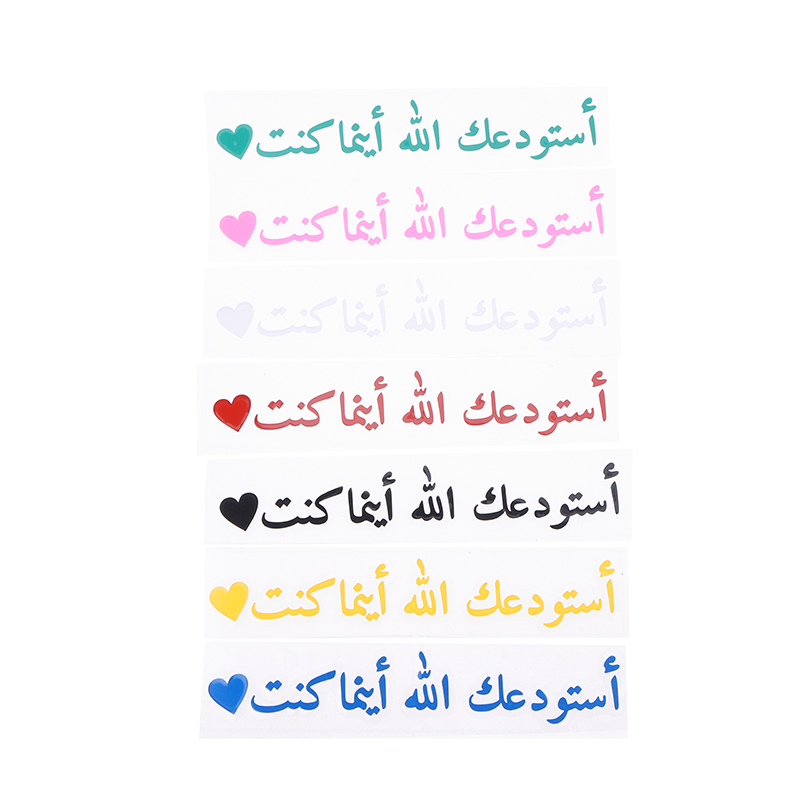 أستودعك الله أينما كنت
أستودعك الله أينما كنت
أستودعك الله أينما كنت
أستودعك الله أينما كنت
أستودعك الله أينما كنت
أستودعك الله أينما كنت
أستودعك الله أينما كنت